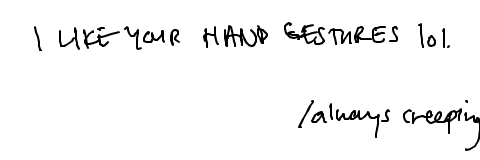 I LIKE YOUR HAND GESTURES lol.
/always creeping